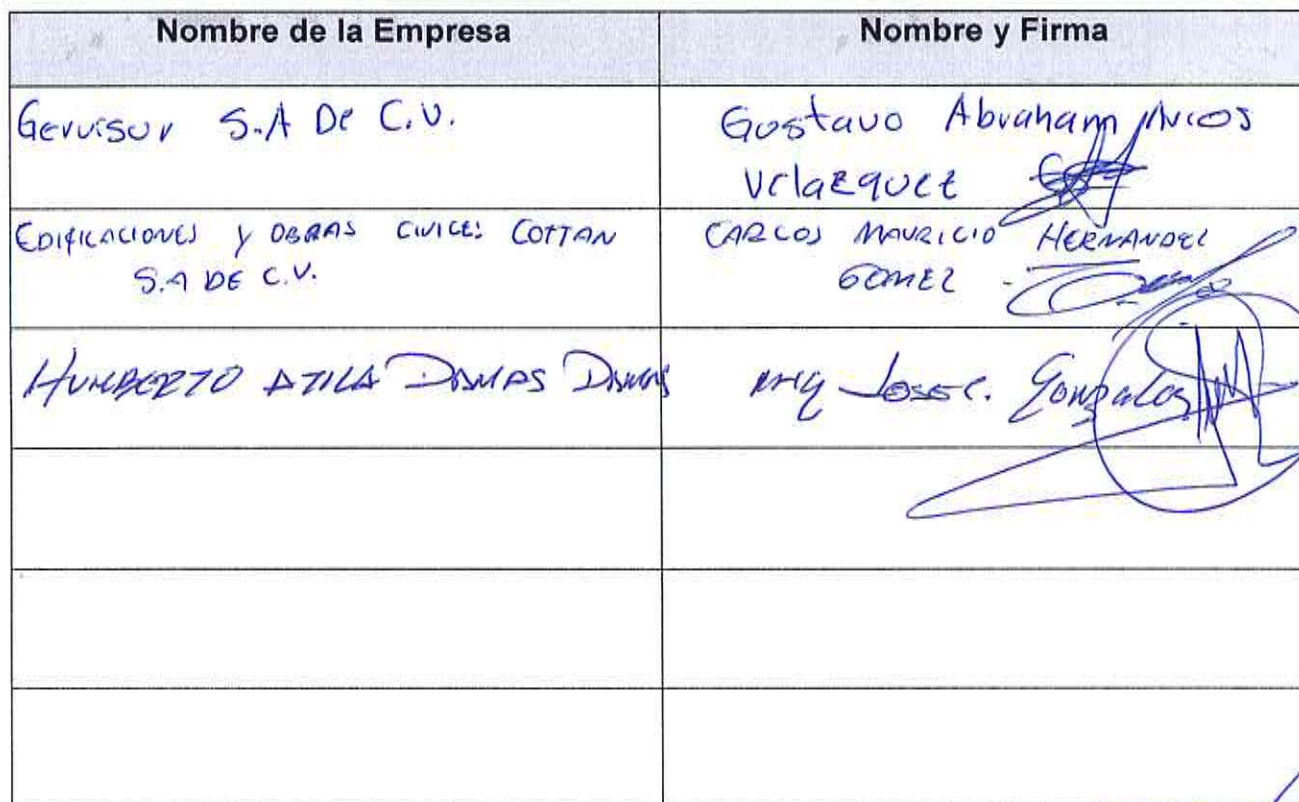 Nombre de la Empresa
Nombre y Firma
Gervisur S.A De C.V.
Gustavo Abraham Arcos
Velazquez
EDIFICACIONES Y OBRAS CIVILES COTTAN
S.A DE C.V.
CARLOS MAURICIO HERNANDEZ
GOMEZ
HUMBERTO ATILA DAMAS DAMAS
Jose C. Gonzalez